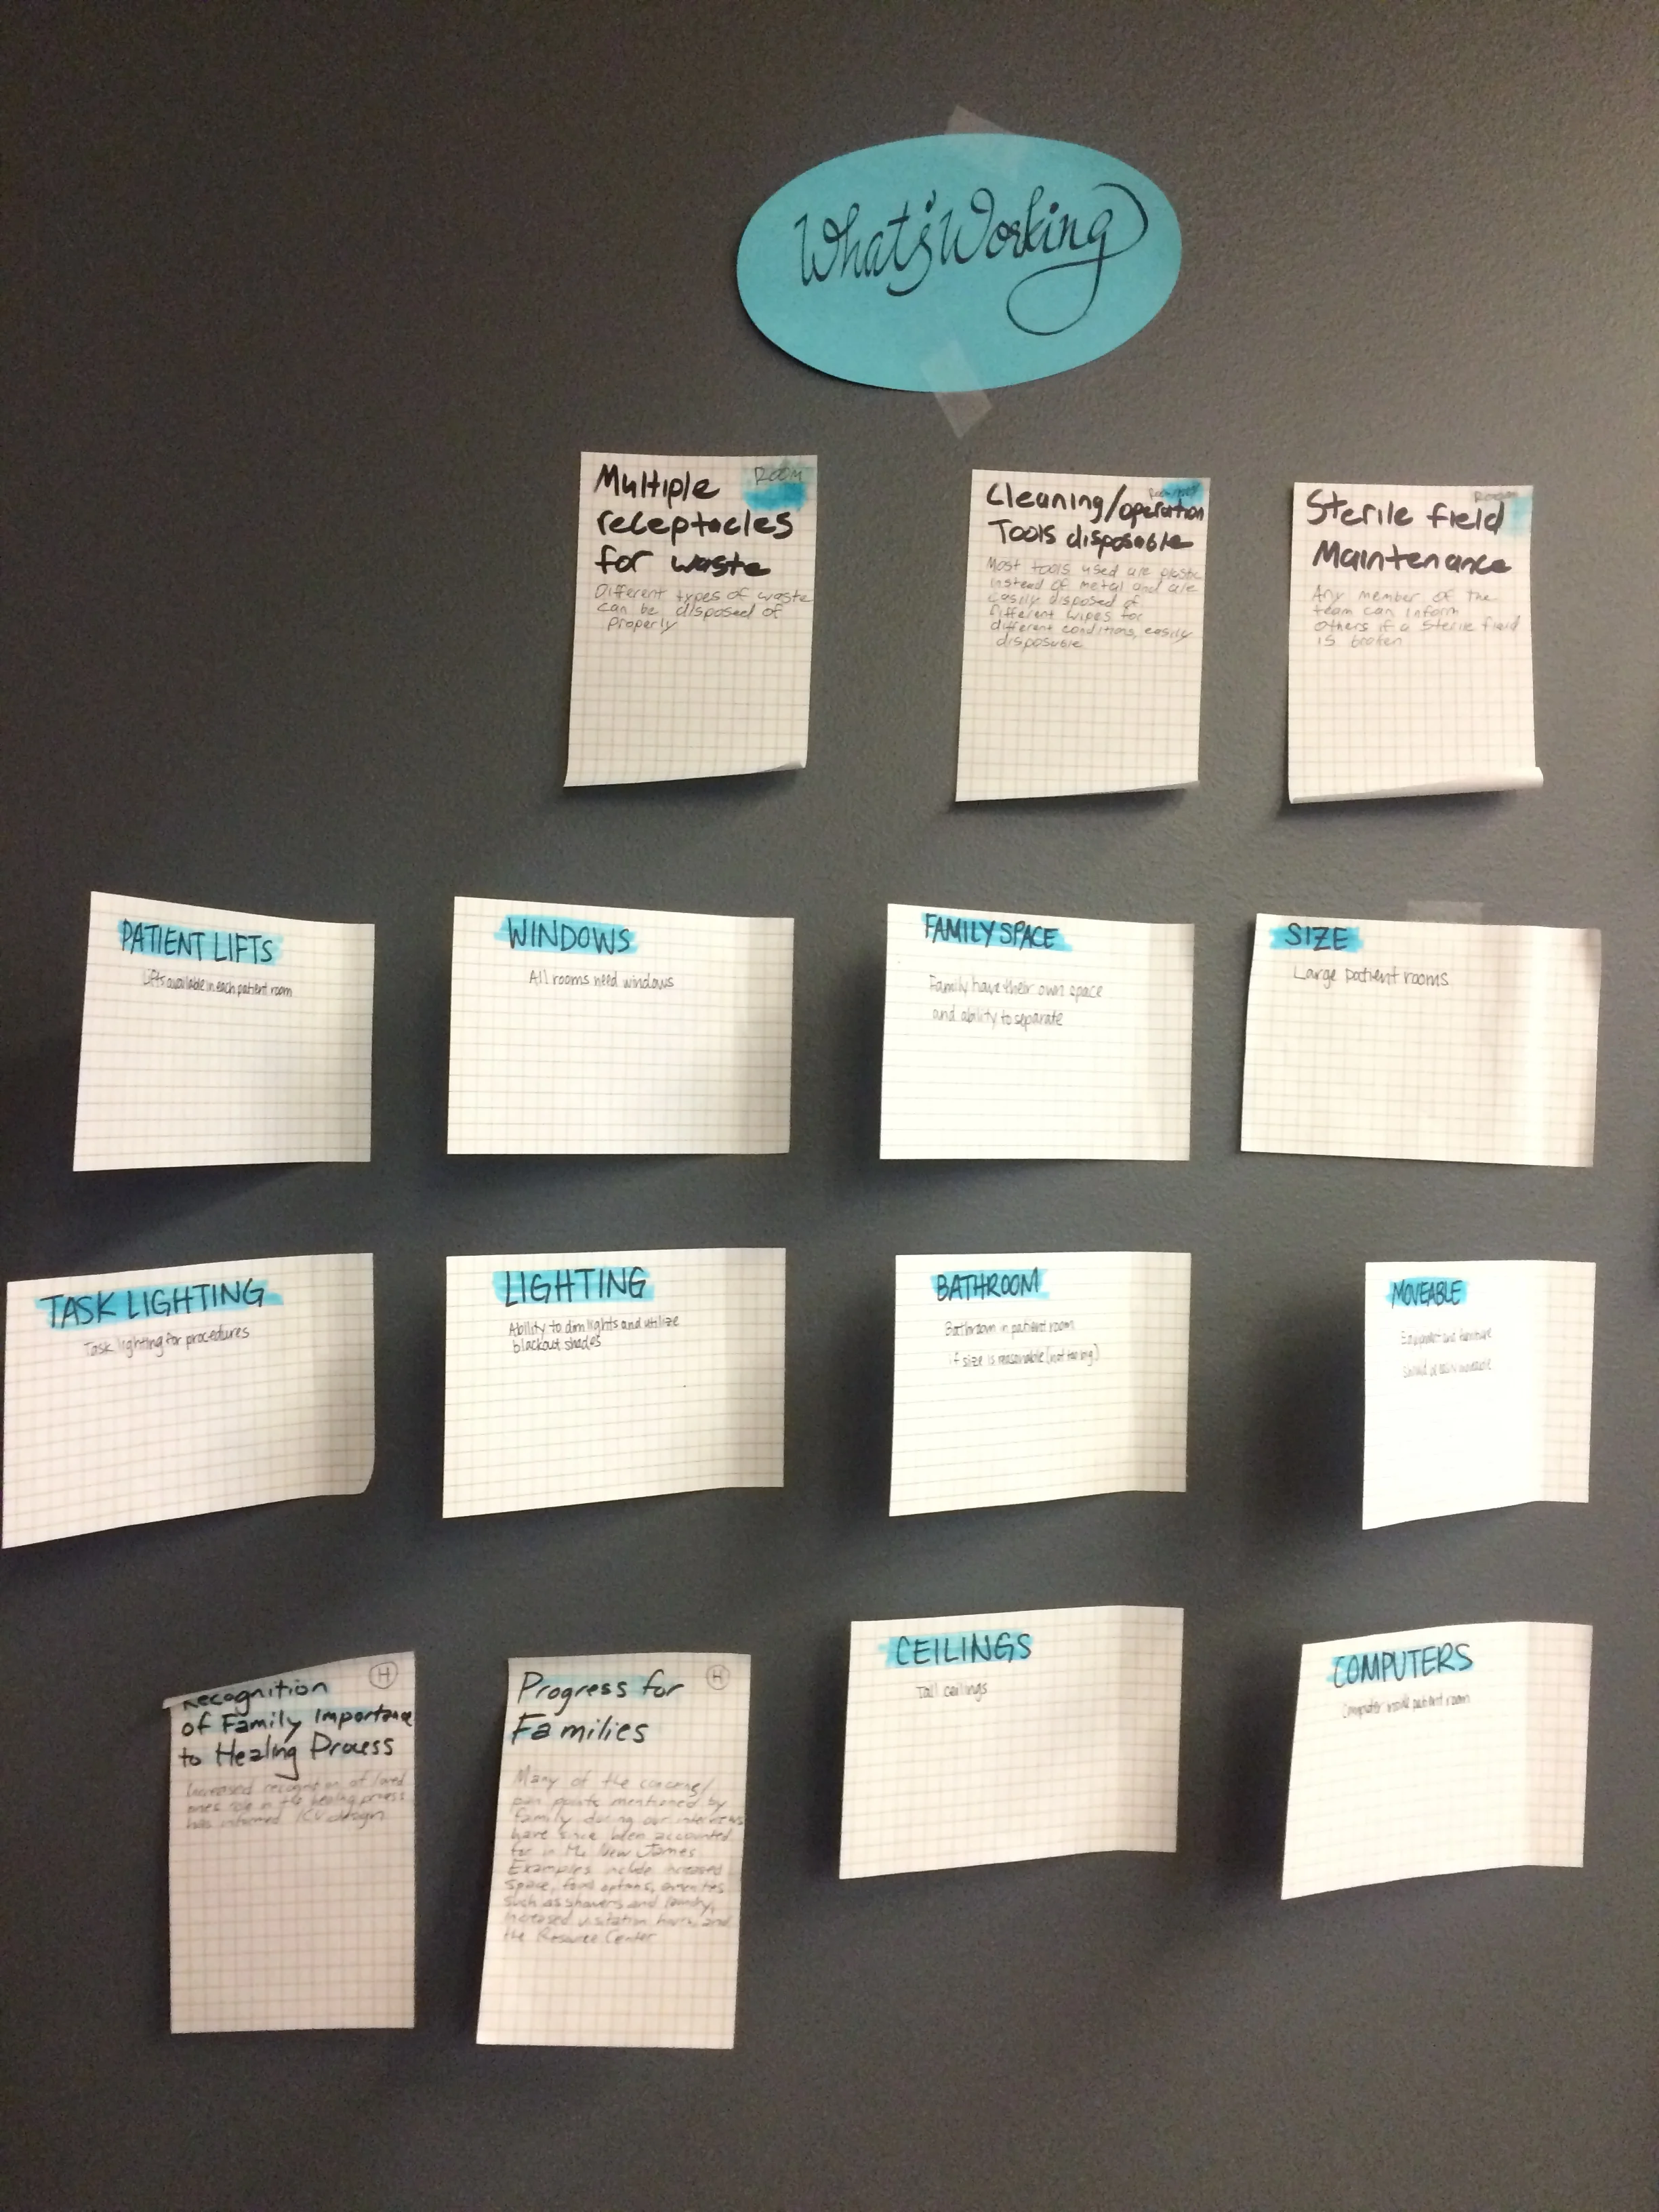 What's Working
Room
Multiple
receptacles
for waste
Different types of waste
can be disposed of
properly
Cleaning/operation
Tools disposable
Most tools used are plastic
instead of metal and are
easily disposed of
Different wipes for
different conditions, easily
disposable
Room
Sterile field
Maintenance
Any member of the
team can inform
others if a sterile field
is broken
PATIENT LIFTS
Lifts available in each patient room
WINDOWS
All rooms need windows
FAMILY SPACE
Family have their own space
and ability to separate
SIZE
Large patient rooms
TASK LIGHTING
Task lighting for procedures
LIGHTING
Ability to dim lights and utilize
blackout shades
BATHROOM
Bathroom in patient room
if size is reasonable (not too big)
MOVEABLE
Equipment and furniture
should be easily moveable
H
Recognition
of Family Importance
to Healing Process
Increased recognition of loved
ones role in the healing process
has informed ICU design
H
Progress for
Families
Many of the concerns/
pain points mentioned by
family during our interviews
have since been accounted
for in the New James
Examples include increased
space, food options, amenities
such as showers and laundry,
increased visitation hours, and
the Resource Center
CEILINGS
Tall ceilings
COMPUTERS
Computer inside patient room